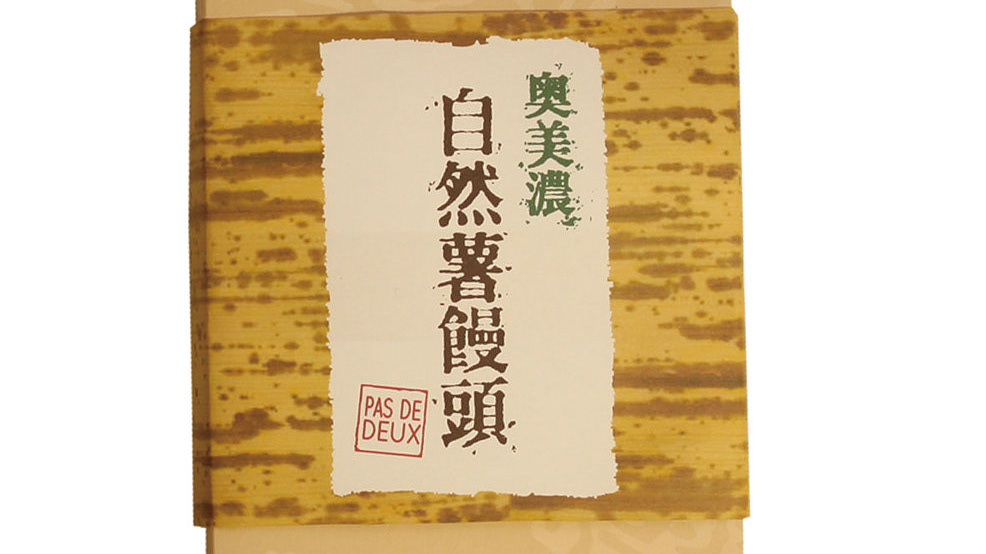 奥美濃
自然薯饅頭
PAS DE
DEUX